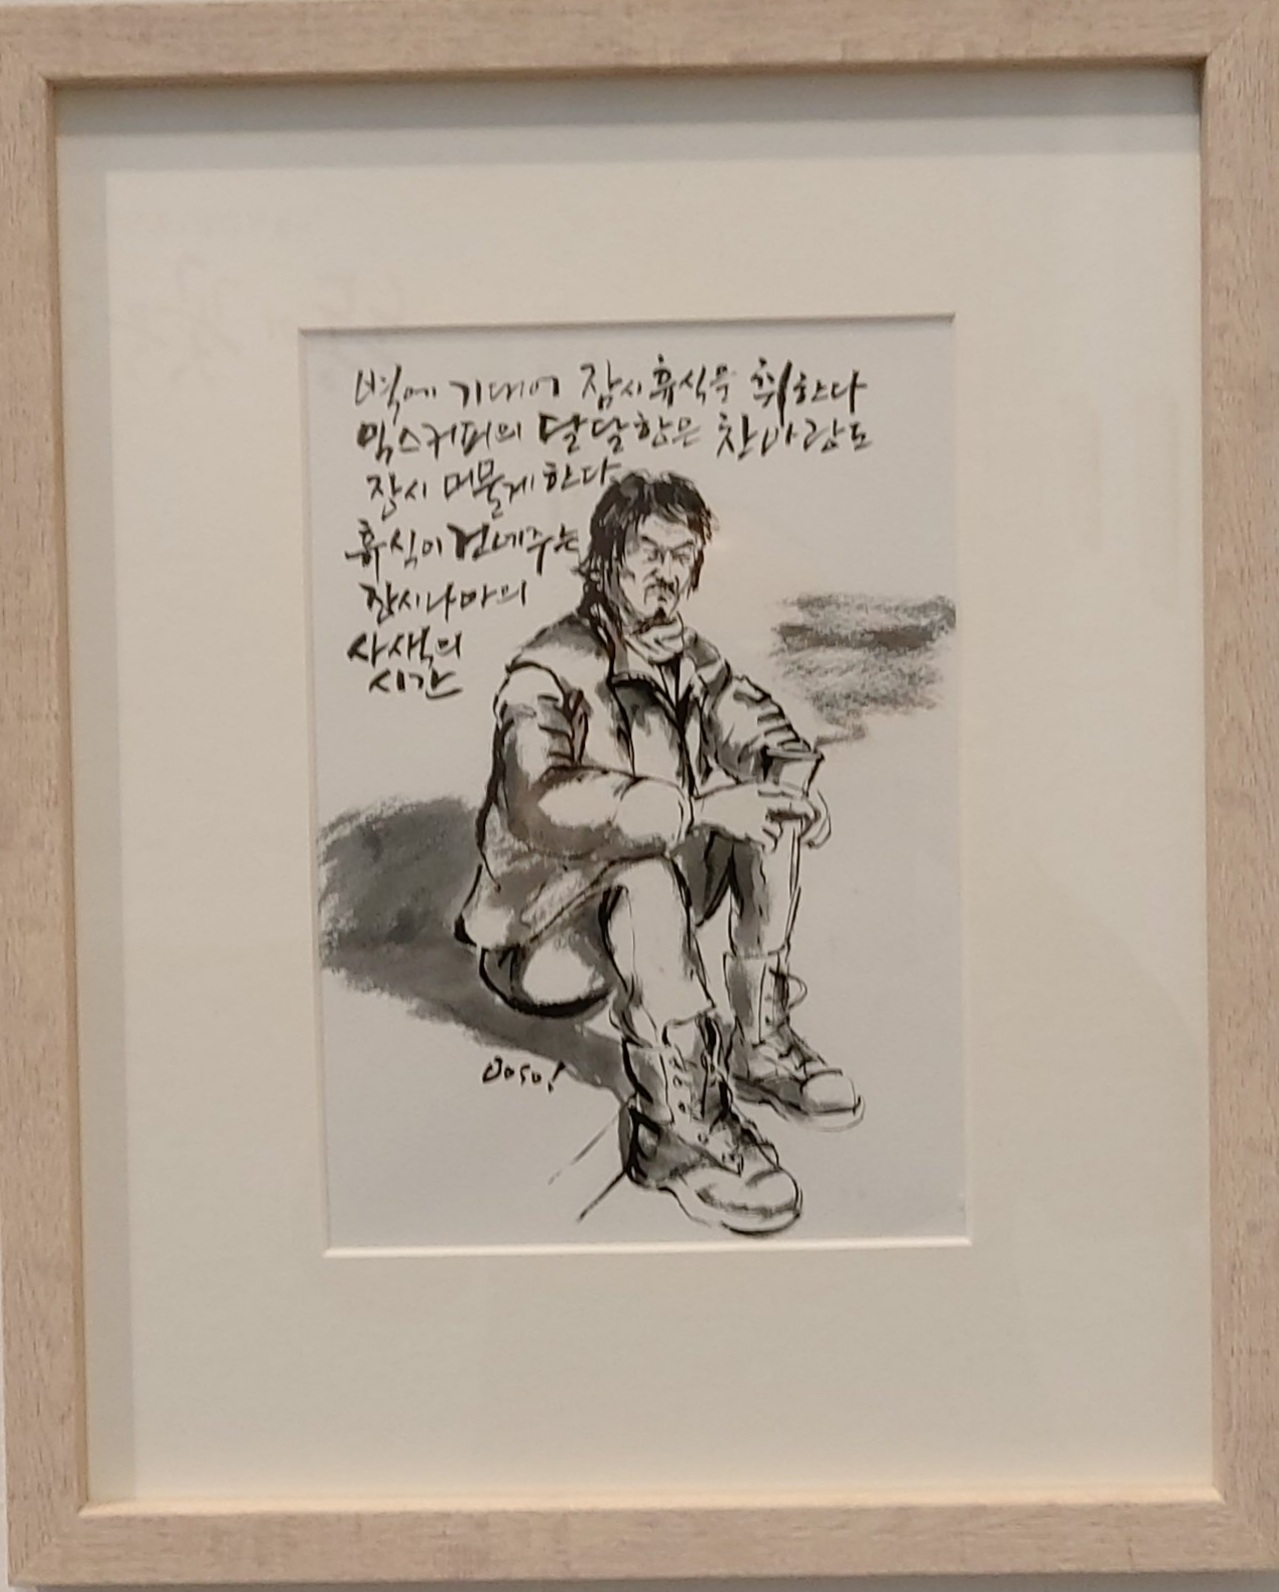 벽에 기대어 잠시휴식을 취한다
믹스커피의 달달함은 찬바람도
잠시 머물게한다
휴식이 건네주는
잠시나마의
사색의
시간